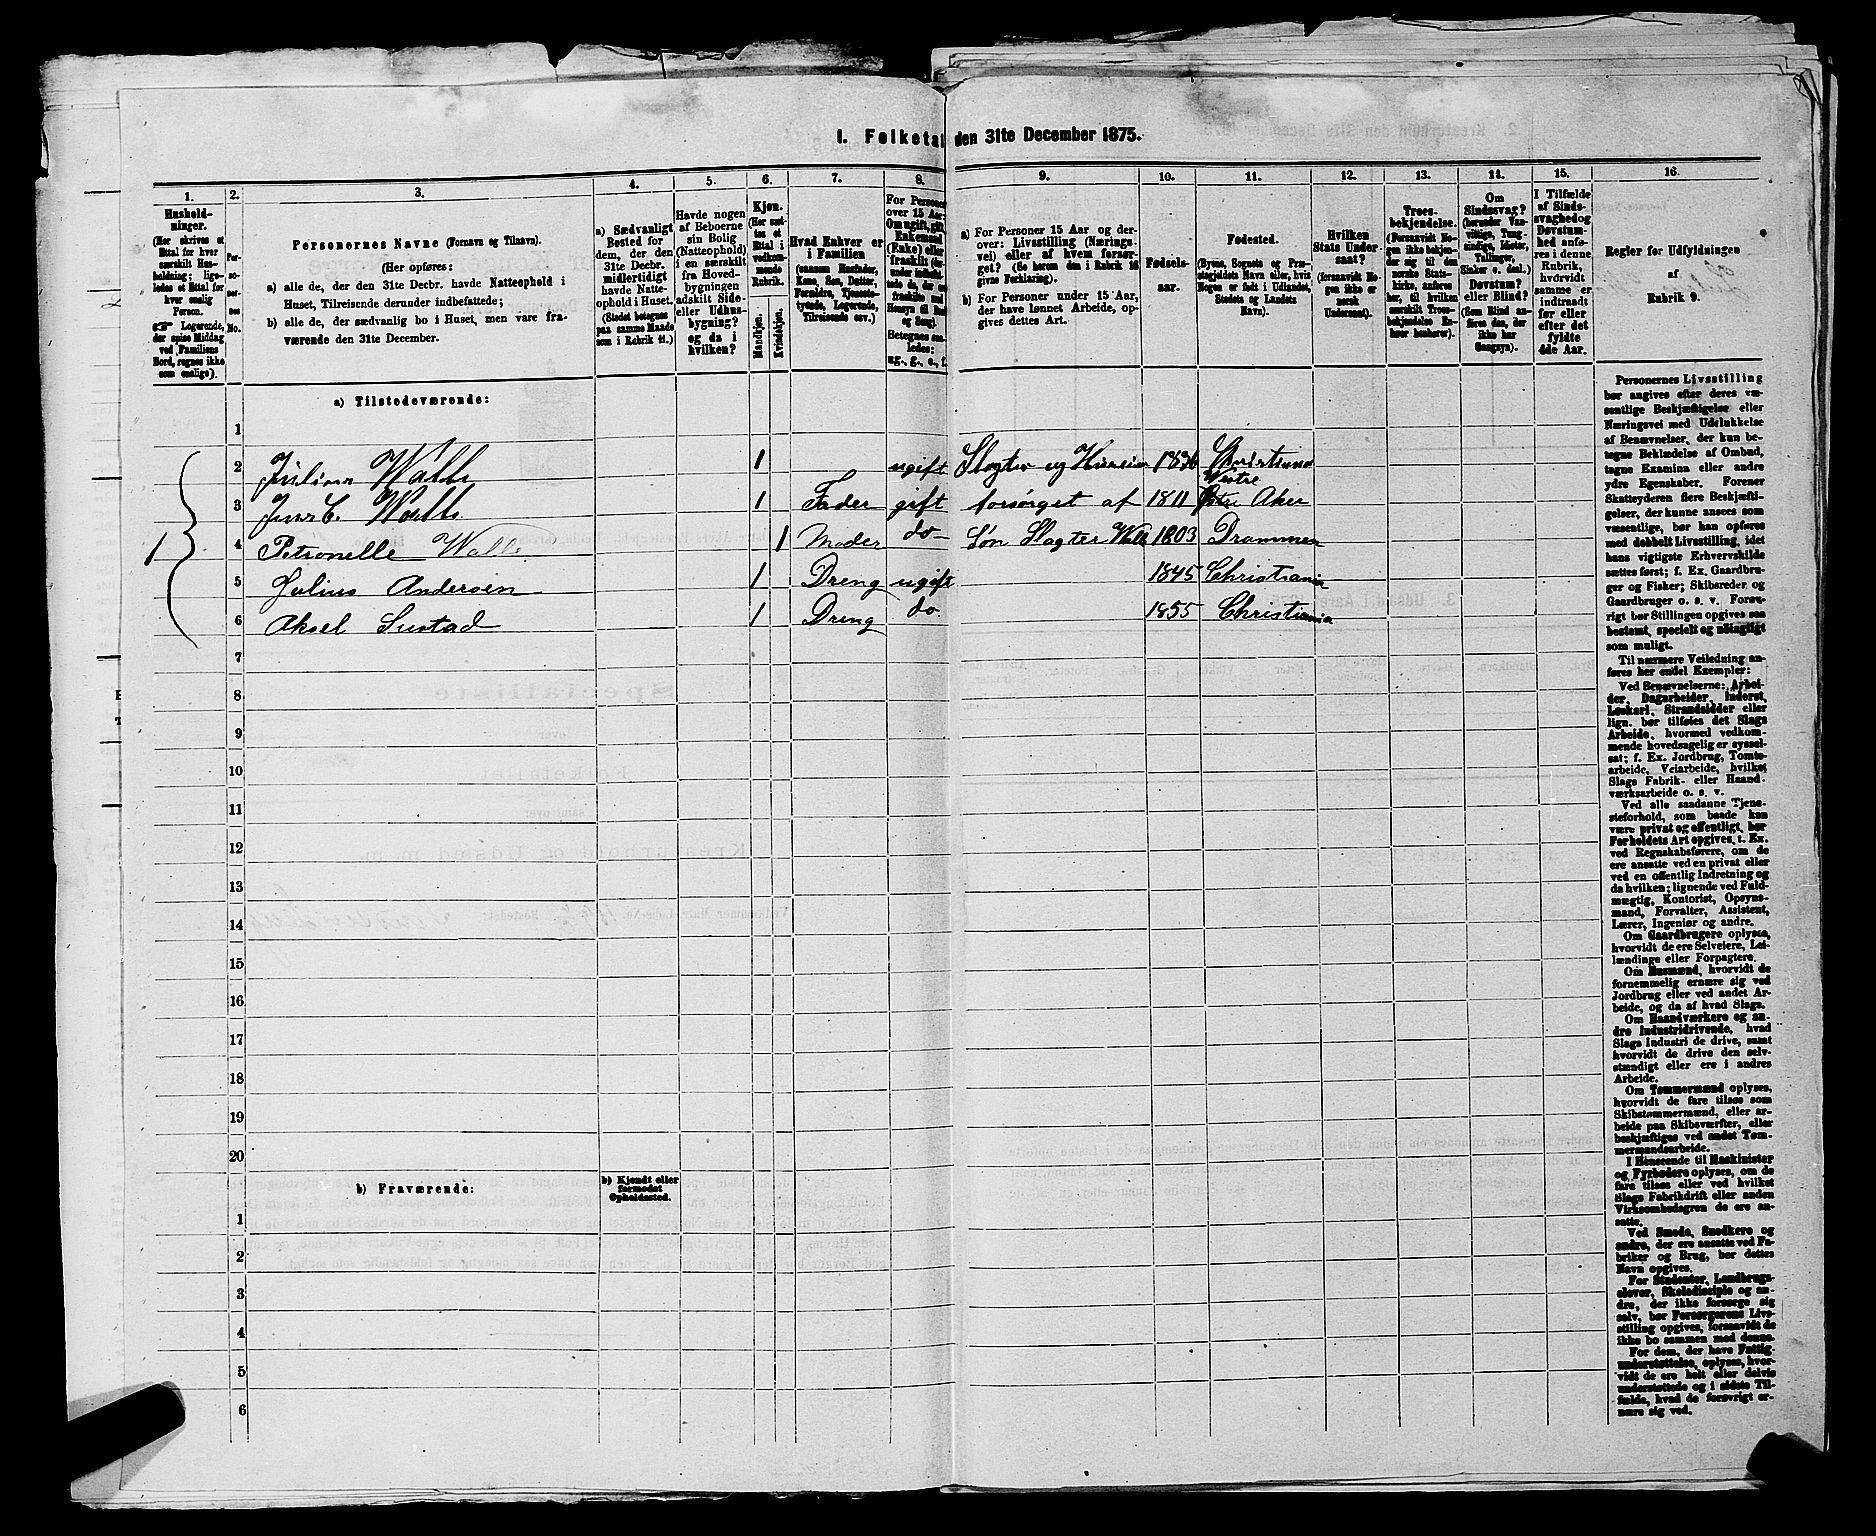 1. Folketal den 31te December 1875.
1. 2. 3. 4. 5. 6. 7. 8. 9. 10. 11. 12. 13. 14. 15. 16.
Hushold-
ninger.
(Her skrives et
Ettal for hver
særskilt Hus-
holdning; lige-
ledes et Ettal for
hver enslig
Person.
☞ Logerende,
der spise Middag
ved Familiens
Bord, regnes ikke
som enslige).
Per-
so-
ner-
nes
No.
Personernes Navne (Fornavn og Tilnavn).
(Her opføres:
a) alle de, der den 31te Decbr. havde Natteophold i
Huset, Tilreisende derunder indbefattede;
b) alle de, der sædvanlig bo i Huset, men vare fra-
værende den 31te December.
a) Sædvanligt
Bosted for
dem, der den
31te Decbr.
midlertidigt
havde Natte-
ophold i Huset.
(Stedet betegnes
paa samme Maade
som i Rubrik 11.)
Havde nogen
af Beboerne
sin Bolig
(Natteophold)
i en særskilt
fra Hoved-
bygningen
adskilt Side-
eller Udhus-
bygning?
og da i
hvilken?
Kjøn.
(Her sæt-
tes et
Ettal i
vedkom-
mende
Rubrik.
Mandkjøn.
Kvindekjøn.
Hvad Enhver er
i Familien
(saasom Husfader,
Kone, Søn, Datter,
Forældre, Tjeneste-
tyende, Logerende,
Tilreisende osv.)
For Personer
over 15 Aar:
Om ugift, gift,
Enkemand
(Enke) eller
fraskilt
Betegnes saa-
ledes:
ug., g., e., f.
a) For Personer 15 Aar og der-
over: Livsstilling (Nærings-
vei) eller af hvem forsør-
get? (Se herom den i Rubrik 16
givne Forklaring).
b) For Personer under 15 Aar,
der have lønnet Arbeide, op-
gives dettes Art.
Fødsels-
aar.
Fødested.
(Byens, Sognets og Præ-
stegjeldets Navn eller, hvis
Nogen er født i Udlandet,
Stedets og Landets
Navn).
Hvilken
Stats Under-
saat?
(forsaavidt No-
gen ikke er
norsk
Undersaat).
Troes-
bekjendelse.
(Forsaavidt No-
gen ikke bekjen-
der sig til den
norske Stats-
kirke, anføres
her, til hvilken
særskilt Troes-
bekjendelse En-
hver henhører).
Om
Sindssvag?
(herunder Van-
vittige, Tung-
sindige, Idioter,
Tullinger,
Sinker o. desl.)
Døvstum?
eller Blind?
(Som Blind an-
føres den, der
ikke har
Gangsyn).
I Tilfælde
af Sinds-
svaghed og
Døvstum-
hed anfø-
res i denne
Rubrik,
hvorvidt
samme er
indtraadt
før eller
efter det
fyldte
4de Aar.
Regler for Udfyldningen
af
Rubrik 9.
a) Tilstedeværende:
1
2 Julius Walle 1 ugift Slagter og Huseier 1836 Christiania
3 Jens C. Walle 1 Fader gift forsørget af 1811 Vestre Aker
1 4 Petronelle Walle 1 Moder do Søn Slagter Walle 1803 Drammen
5 Julius Andersen 1 Dreng ugift 1845 Christiania
6 Aksel Sustad 1 Dreng do 1855 Christiania
7
8
9
10
11
12
13
14
15
16
17
18
19
20
b) Fraværende:
b) Kjendt eller
formodet
Opholdssted.
1
2
3
4
5
6
Personernes Livsstilling
bør angives efter deres væ-
sentlige Beskjæftigelse eller
Næringsvei med Udelukkelse
af Benævnelser, der kun be-
tegne Beklædelse af Ombud,
tagne Examina eller andre
ydre Egenskaber. Forener
Skatteyderen flere Beskjæfti-
gelser, der kunne ansees som
væsentlige, bør han opføres
med dobbelt Livsstilling, idet
hans vigtigste Erhvervskilde
sættes først; f. Ex. Gaardbru-
ger og Fisker; Skibsreder og
Gaardbruger o. s. v. Forøv-
rigt bør Stillingen opgives saa
bestemt, specielt og nøiagtigt
som muligt.
Til nærmere Veiledning an-
føres her endel Exempler:
Ved Benævnelserne: Arbei-
der, Dagarbeider, Inderst,
Løskarl, Strandsidder eller
lign. bør tilføies det Slags
Arbeide, hvormed vedkom-
mende hovedsagelig er syssel-
sat; f. Ex. Jordbrug, Tomte-
arbeide, Veiarbeide, hvilket
Slags Fabrik- eller Haand-
værksarbeide o. s. v.
Ved alle saadanne Tjene-
steforhold, som baade kan
være privat og offentligt, bør
Forholdets Art opgives, t. Ex.
ved Regnskabsførere, om de
ere ansatte ved en privat eller
ved en offentlig Indretning og
da hvilken; lignende ved Fuld-
mægtig, Kontorist, Opsyns-
mand, Forvalter, Assistent,
Lærer, Ingeniør og andre.
Om Gaardbrugere oplyses,
hvorvidt de ere Selveiere, Lei-
lændinge eller Forpagtere.
Om Husmænd, hvorvidt de
fornemmelig ernære sig ved
Jordbrug eller ved andet Ar-
beide, og da af hvad Slags.
Om Haandværkere og an-
dre Industridrivende, hvad
Slags Industri de drive, samt
hvorvidt de drive den selv-
stændigt eller ere i andres
Arbeide.
Om Tømmermænd oplyses,
hvorvidt de fare tilsøs som
Skibstømmermænd, eller ar-
beide paa Skibsværfter, eller
beskjæftiges ved andet Tøm-
mermandsarbeide.
I Henseende til Maskinister
og Fyrbødere oplyses, om de
fare tilsøs eller ved hvilket
Slags Fabrikdrift eller anden
Virksomhedsgren de ere an-
satte.
Ved Smede, Snedkere og
andre, der ere ansatte ved Fa-
briker og Brug, bør dettes
Navn opgives.
For Studenter, Landbrugs-
elever, Skoledisciple og an-
dre, der ikke forsørge sig
selv, bør Forsørgerens Livs-
stilling opgives, forsaavidt de
ikke bo sammen med denne.
For dem, der have Fattig-
understøttelse, oplyses, hvor-
vidt de ere helt eller delvis
understøttede og i sidste Til-
fælde, hvad de forøvrigt er-
nære sig ved.